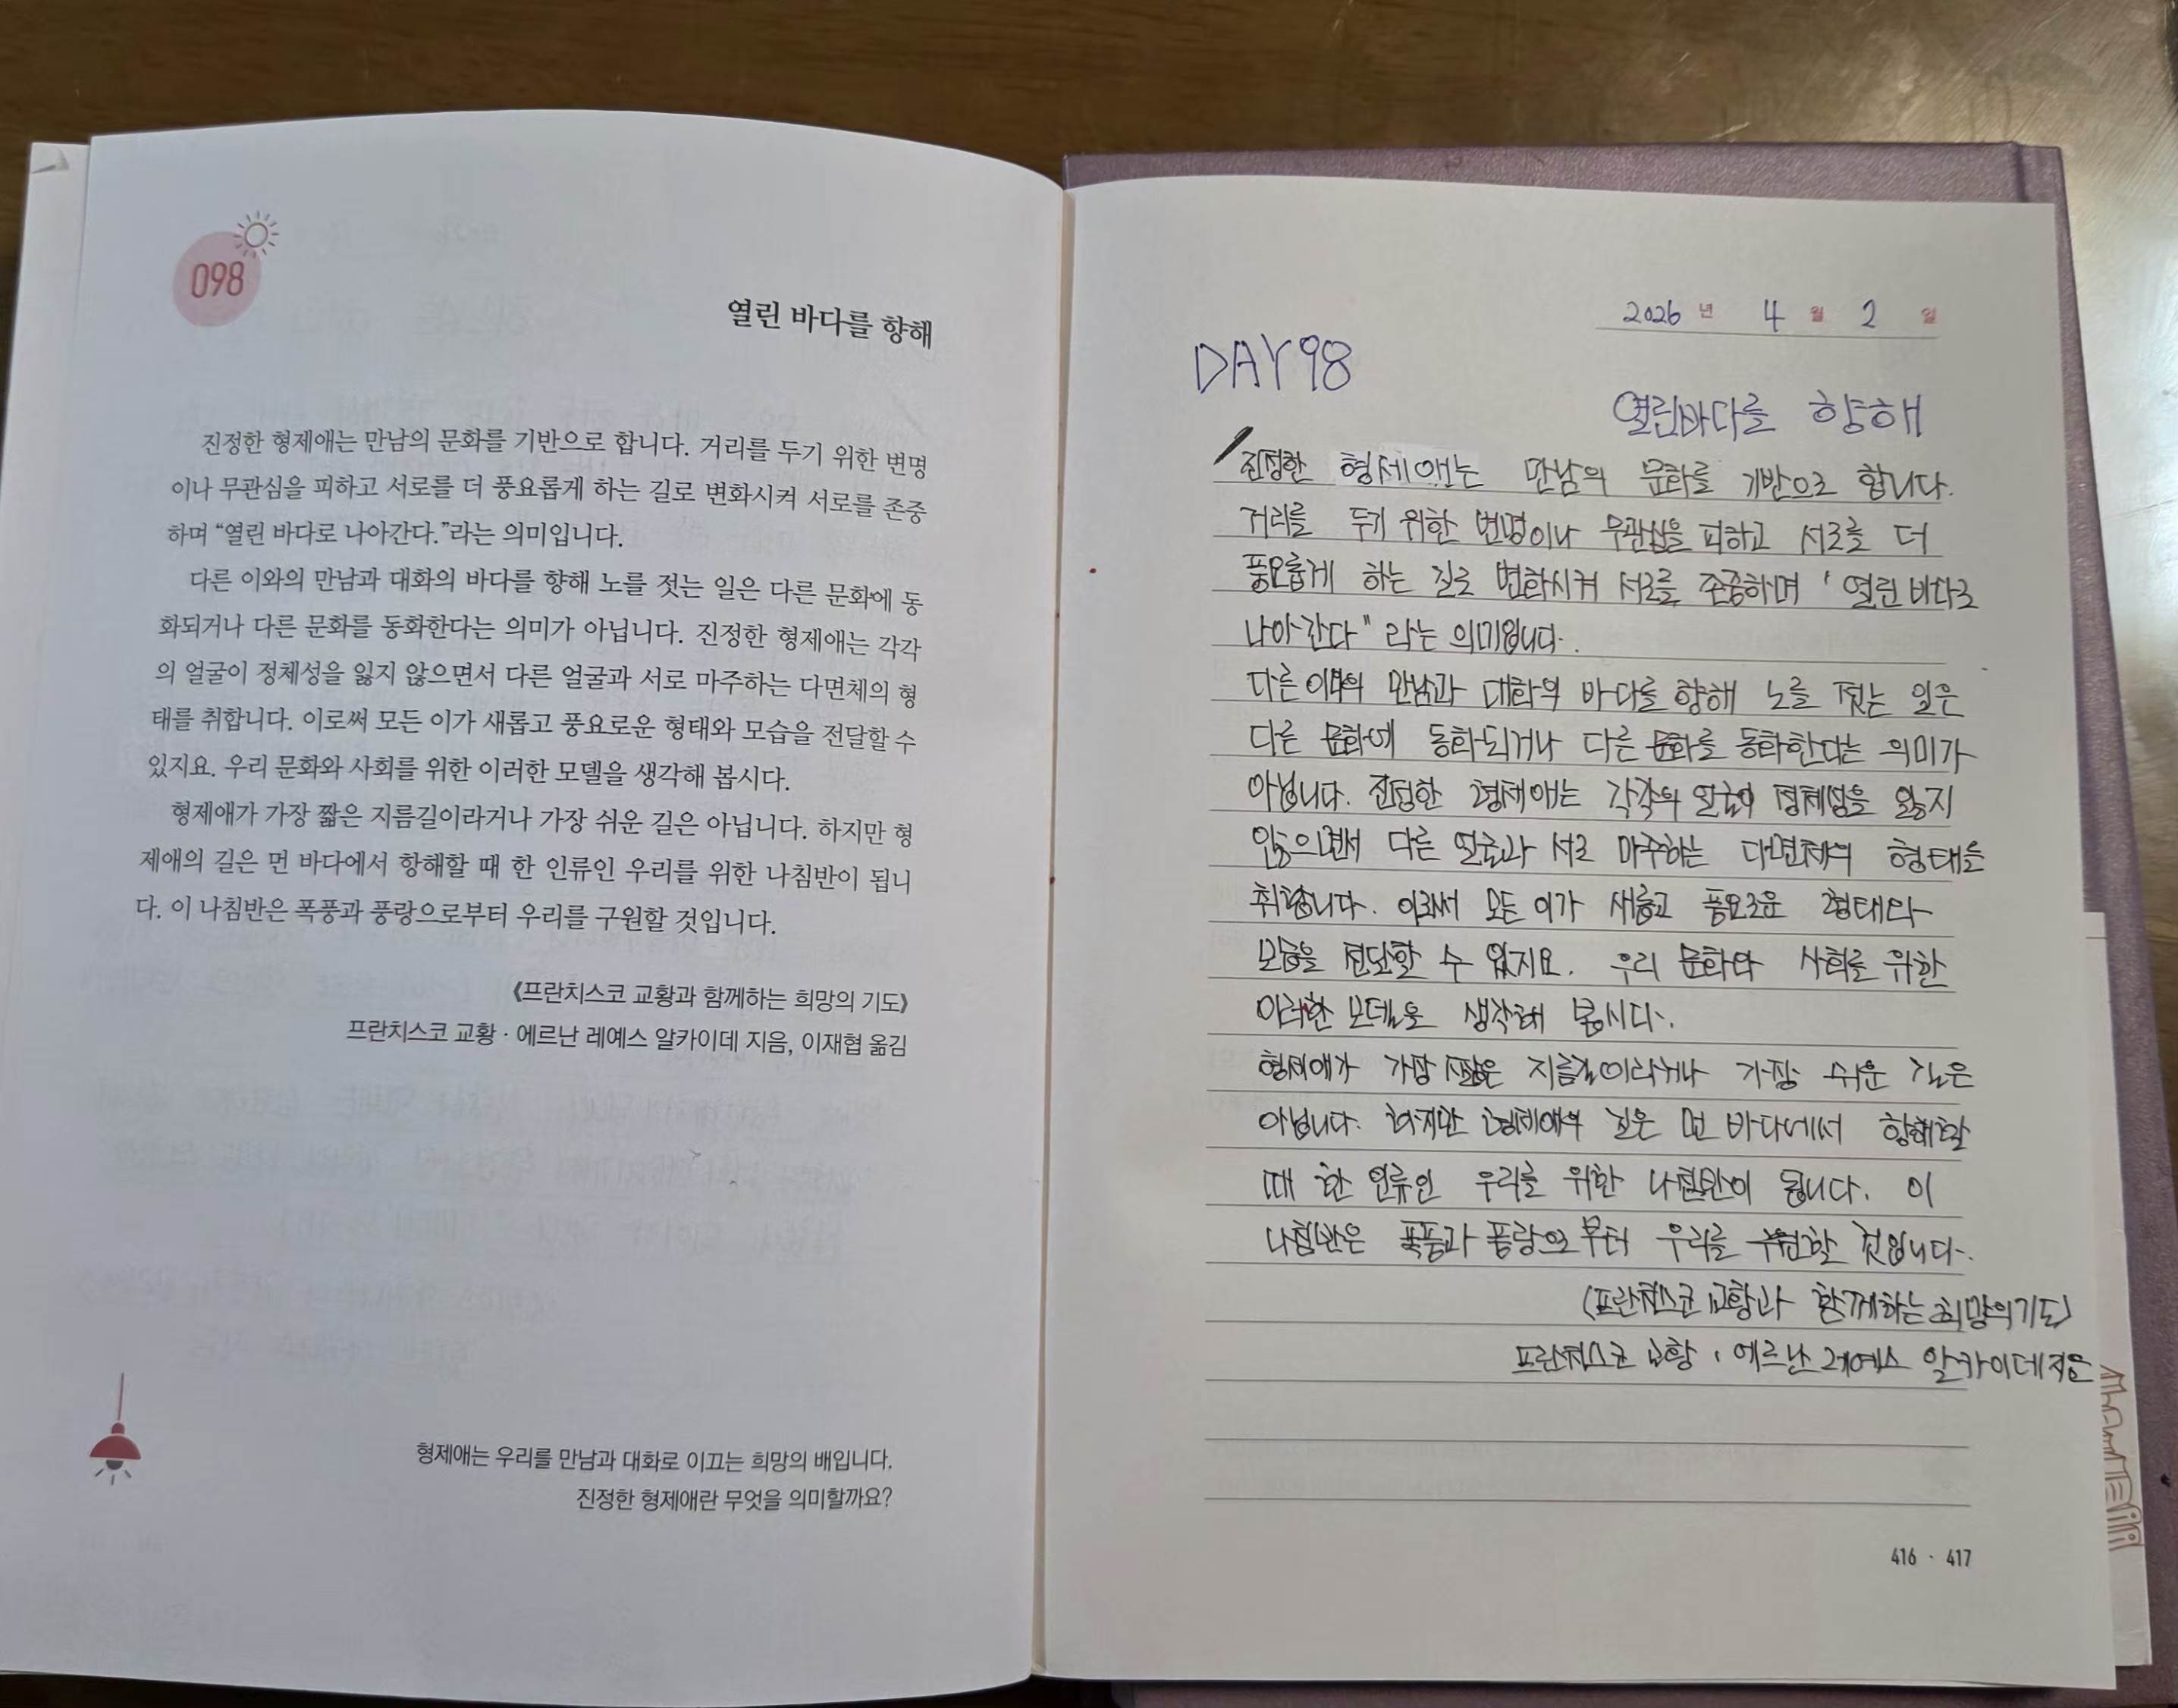 098
열린 바다를 향해
진정한 형제애는 만남의 문화를 기반으로 합니다. 거리를 두기 위한 변명
이나 무관심을 피하고 서로를 더 풍요롭게 하는 길로 변화시켜 서로를 존중
하며 “열린 바다로 나아간다.”라는 의미입니다.
다른 이와의 만남과 대화의 바다를 향해 노를 젓는 일은 다른 문화에 동
화되거나 다른 문화를 동화한다는 의미가 아닙니다. 진정한 형제애는 각각
의 얼굴이 정체성을 잃지 않으면서 다른 얼굴과 서로 마주하는 다면체의 형
태를 취합니다. 이로써 모든 이가 새롭고 풍요로운 형태와 모습을 전달할 수
있지요. 우리 문화와 사회를 위한 이러한 모델을 생각해 봅시다.
형제애가 가장 짧은 지름길이라거나 가장 쉬운 길은 아닙니다. 하지만 형
제애의 길은 먼 바다에서 항해할 때 한 인류인 우리를 위한 나침반이 됩니
다. 이 나침반은 폭풍과 풍랑으로부터 우리를 구원할 것입니다.
《프란치스코 교황과 함께하는 희망의 기도》
프란치스코 교황 · 에르난 레예스 알카이데 지음, 이재협 옮김
형제애는 우리를 만남과 대화로 이끄는 희망의 배입니다.
진정한 형제애란 무엇을 의미할까요?
2026 년 4 월 2 일
DAY 98
열린바다를 향해
진정한 형제애는 만남의 문화를 기반으로 합니다.
거리를 두기 위한 변명이나 무관심을 피하고 서로를 더
풍요롭게 하는 길로 변화시켜 서로를 존중하며 ' 열린 바다로
나아간다" 라는 의미입니다.
다른 이와의 만남과 대화의 바다를 향해 노를 젓는 일은
다른 문화에 동화되거나 다른 문화를 동화한다는 의미가
아닙니다. 진정한 형제애는 각각의 얼굴이 정체성을 잃지
않으면서 다른 얼굴과 서로 마주하는 다면체의 형태를
취합니다. 이로써 모든 이가 새롭고 풍요로운 형태와
모습을 전달할 수 있지요. 우리 문화와 사회를 위한
이러한 모델을 생각해 봅시다.
형제애가 가장 짧은 지름길이라거나 가장 쉬운 길은
아닙니다. 하지만 형제애의 길은 먼 바다에서 항해할
때 한 인류인 우리를 위한 나침반이 됩니다. 이
나침반은 폭풍과 풍랑으로부터 우리를 구원할 것입니다.
(프란치스코 교황과 함께하는 희망의 기도)
프란치스코 교황 · 에르난 레예스 알카이데 지은
416 · 417